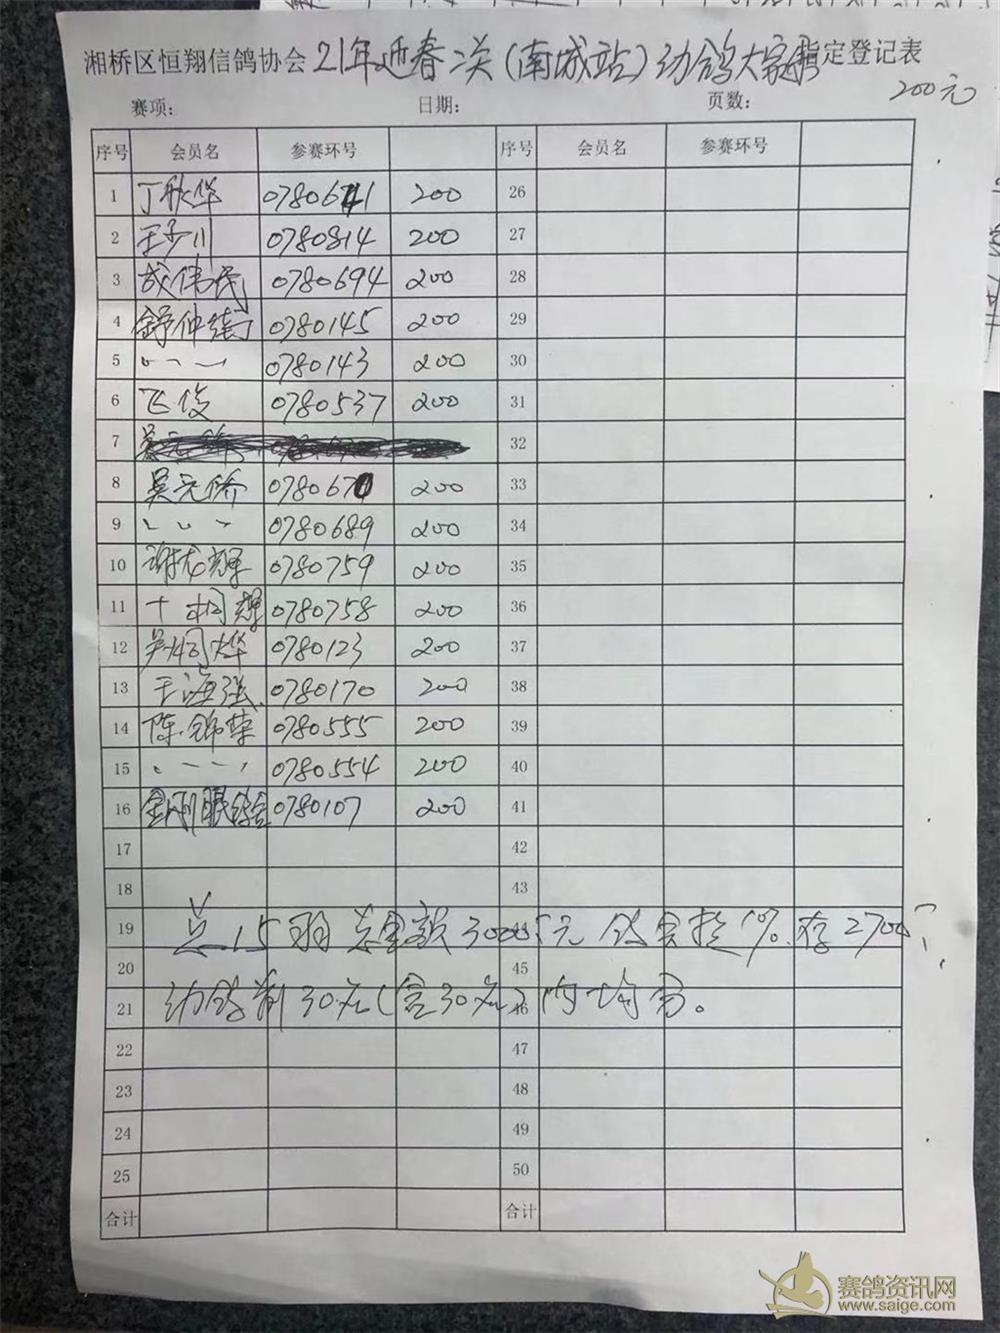 湘桥区恒翔信鸽协会21年迎春二关(南城站)幼鸽大家指定登记表
200元
赛项: 日期: 页数:
序号 会员名 参赛环号 序号 会员名 参赛环号
1 丁秋华 0780641 200 26
2 王少川 0780814 200 27
3 成伟民 0780694 200 28
4 舒仲 0780145 200 29
5 、、一 0780143 200 30
6 飞俊 0780537 200 31
7 32
8 吴元侨 0780670 200 33
9 、、、 0780689 200 34
10 谢龙辉 0780759 200 35
11 0780758 200 36
12 0780123 200 37
13 王海强 0780170 200 38
14 陈锦荣 0780555 200 39
15 、一一、 0780554 200 40
16 金刚眼鸽舍 0780107 200 41
17 42
18 43
19 总15羽 总金额3000元 鸽会抽10% 存2700
20 45
21 幼鸽前30名(含30名)内均分。 46
22 47
23 48
24 49
25 50
合计 合计
赛鸽资讯网
www.saige.com